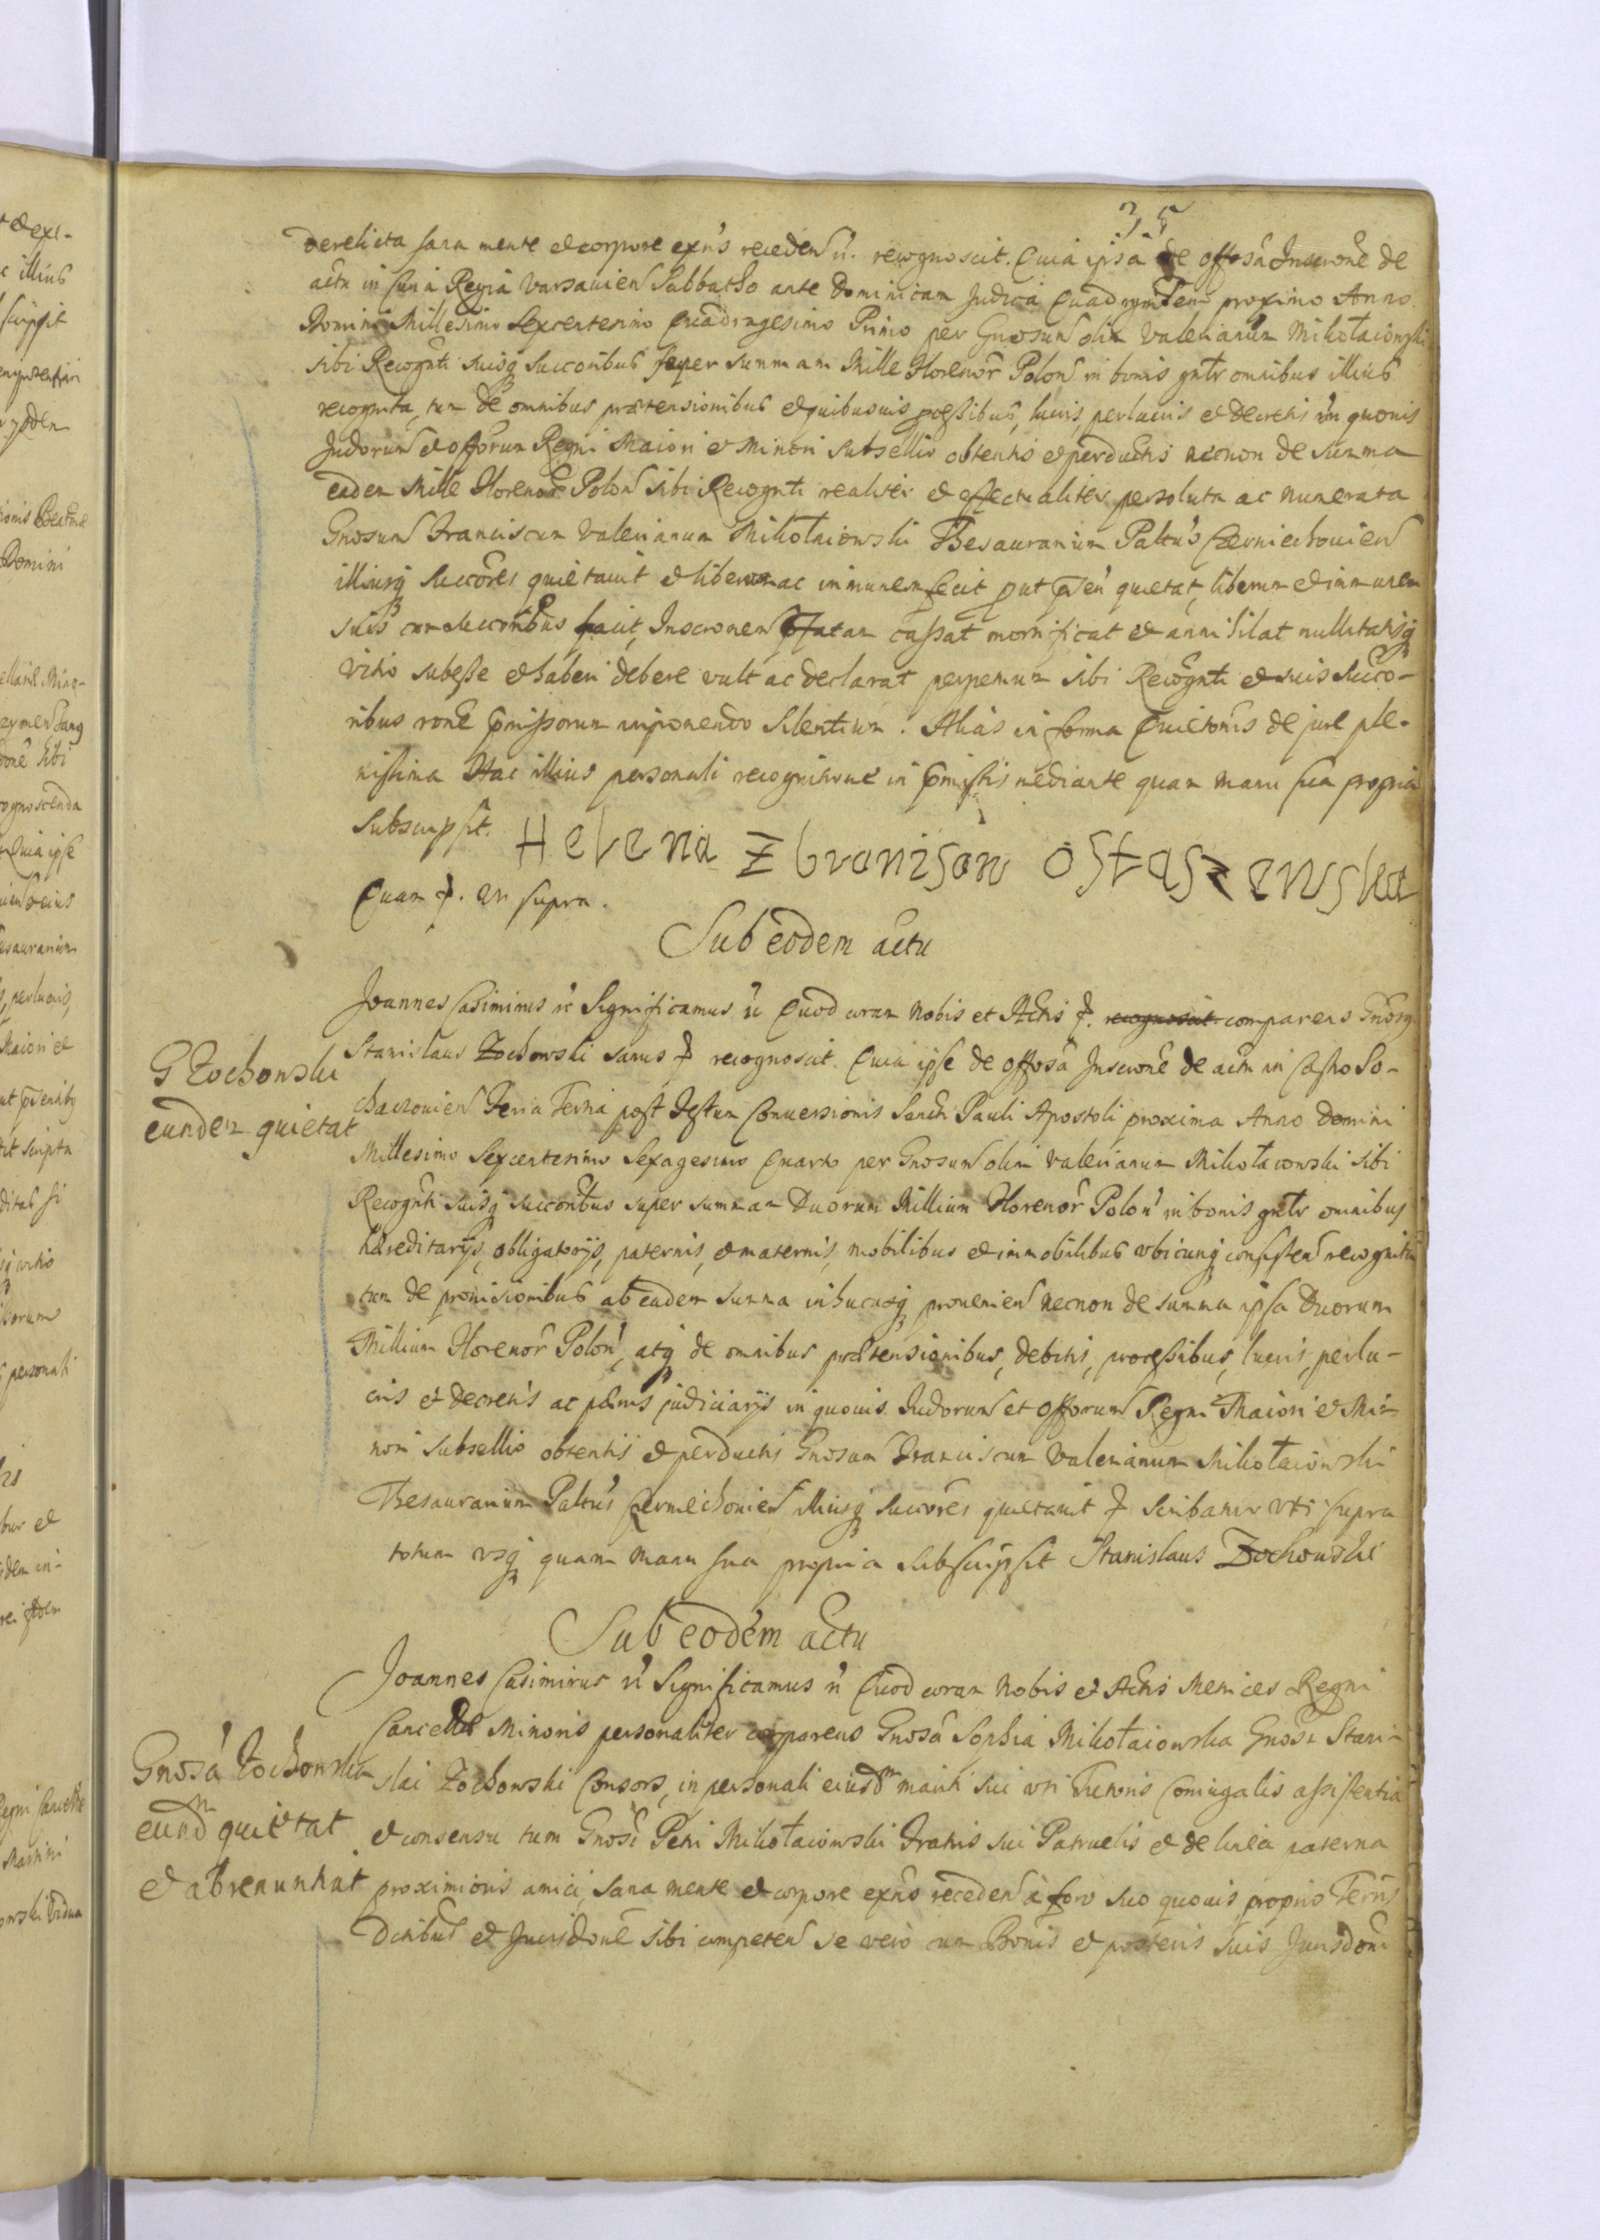 35
derelicta sana mente et corpore exñs receden ñ. recognoscit. Quia ipsa de offosa Inscrone de
actu in Curia Regia Varsauien Sabbatho ante Dominicam Judica Quadragmalem proximo Anno
Domini Millesimo Sexcentesimo Quadragesimo Primo per Gnosum olim Valerianum Mikołaiowski
sibi Recognti suisq succoribus super summam Mille Florenor Polon in bonis gntr omnibus illius
recognita, tum de omnibus prætensionibus et quibusuis processibus, lucris, perlucris et decretis in quouis
Judiorum et offorum Regni Maiori et Minori subsellio obtentis et perductis necnon de summa
eadem Mille Florenor Polon sibi Recognti realiter et effectualiter persoluta ac numerata
Gnosum Franciscum Valerianum Mikołaiowski Thesaurarium Paltus Czerniechouien
illiusq Succores quietauit et liberum ac immunem fecit put pñ quietat, liberum et immunem
suis cum succoribus facit, Inscronem pfatam cassat mortificat et annihilat nullitatisq
vitio subesse et haberi debere vult ac declarat perpetuum sibi Recognti et suis Succo-
ribus rone pmissorum imponendo silentium. Alias in forma Quietonis de jure ple-
nissima Hac illius personali recognitione in pmissis mediante quam manu sua propria
Subscripsit. Helena Z bronison ostaszewska
Quam p. ut supra.
Sub eodem actu
Joannes Casimirus ñ Significamus ñ Quod coram Nobis et Actis p. recognoscit comparens Gnosq
G Zochowski
eundem quietat
Stanislaus Zochowski sanus p recognoscit. Quia ipse de offosa Inscrone de actu in Castro So-
chaczouien Feria Tertia post Festum Conuersionis Sancti Pauli Apostoli proxima Anno Domini
Millesimo Sexcentesimo Sexagesimo Quarto per Gnosum olim Valerianum Mikołaiowski sibi
Recognti suisq succoribus super summam Duorum Millium Florenor Polon in bonis gntr omnibus
hæreditarijs, obligatorijs, paternis, et maternis, mobilibus et immobilibus vbicunq consisten recognita
tum de prouisionibus ab eadem summa in hucusq prouenien necnon de summa ipsa Duorum
Millium Florenor Polon, atq de omnibus prætensionibus, debitis, processibus, lucris, perlu-
cris et decretis ac pænis judiciarijs in quouis Judiorum et Offorum Regni Maiori et Mi-
nori subsellio obtentis et perductis Gnosum Franciscum Valerianum Mikołaiowski
Thesaurarium Paltus Czerniechouien illiusq Succores quietauit p scribatur vti supra
totum vsq quam manu sua propria subscripsit Stanislaus Zochowski
Sub eodem actu
Joannes Casimirus ñ Significamus ñ Quod coram Nobis et Actis Metrices Regni
Cancellæ Minoris personaliter comparens Gnosa Sophia Mikołaiowska Gnosi Stani-
Gnosa Zochowska
eundm quietat
et abrenuntiat
slai Zochowski Consors, in personali eiusdm mariti sui vti Tutoris Coniugalis assistentia
et consensu tum Gnosi Petri Mikołaiowski Fratris sui Patruelis et de linea paterna
proximioris amici, sana mente et corpore exñs receden à foro suo quouis proprio Terris
Dctibus et Jurisdone sibi competen se vero cum Bonis et posteris suis Jurisdoni